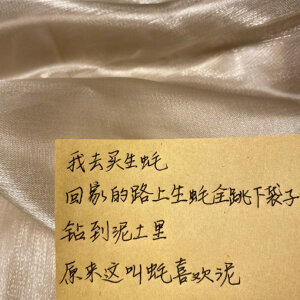 我去买生蚝
回家的路上生蚝全跳下袋子
钻到泥土里
原来这叫蚝喜欢泥